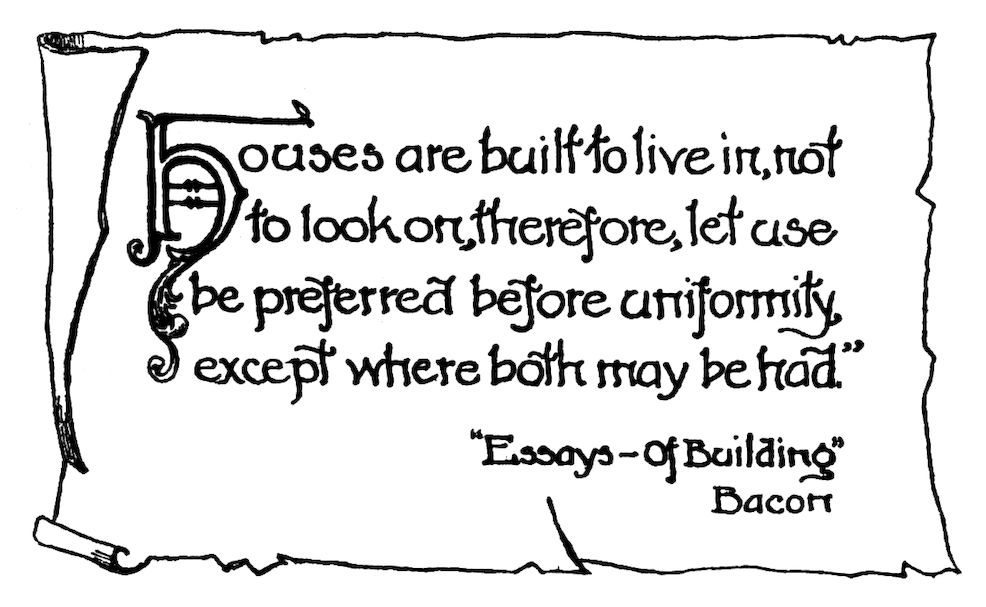 Houses are built to live in, not
to look on, therefore, let use
be preferred before uniformity,
except where both may be had.”
“Essays – Of Building”
Bacon